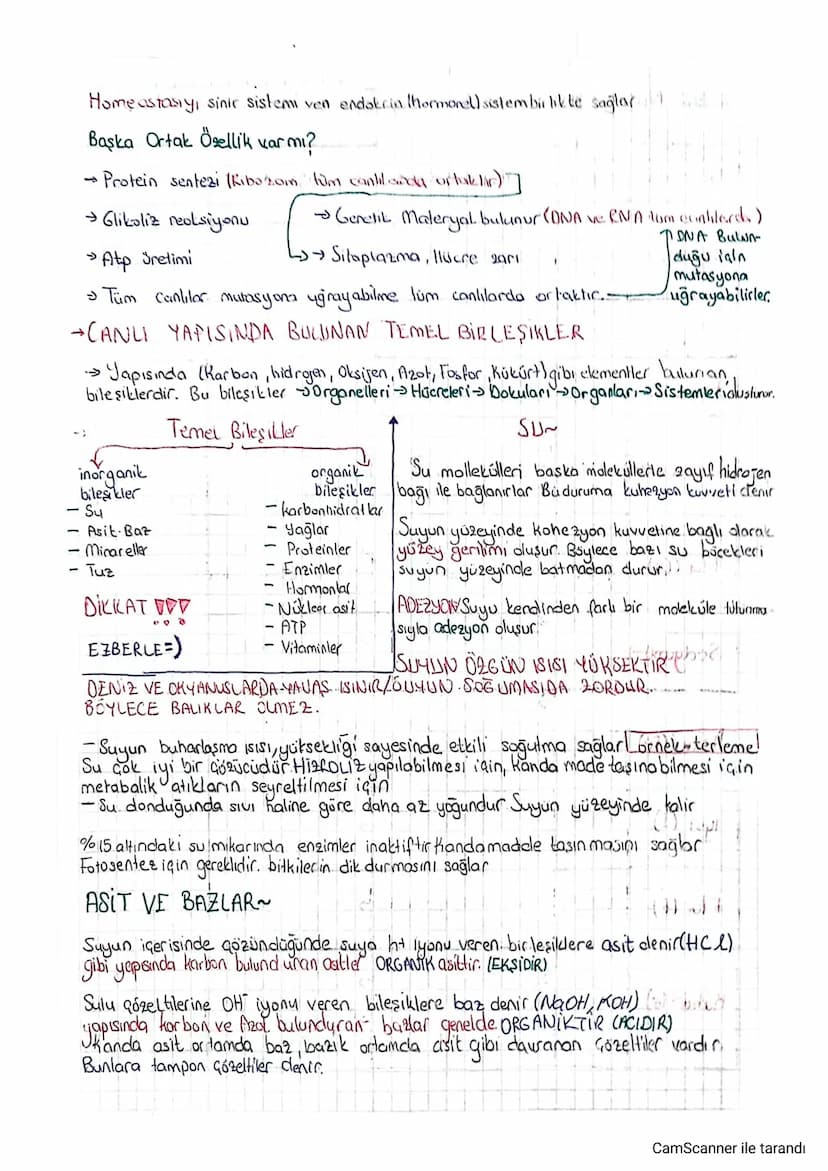 Homeostasıyı sinir sistemi ven endokrin (hormonel) sistem birlikte sağlar
Başka Ortak Özellik var mı?
→ Protein sentezi (Ribozom tüm canlılarda ortaktır)
→ Glikoliz reaksiyonu
→ Genetik Materyal bulunur (DNA ve RNA tüm canlılarda)
→ Atp üretimi
→ Sitoplazma, Hücre zarı
↑ DNA Bulun-
duğu için
mutasyona
uğrayabilirler.
→ Tüm Canlılar mutasyona uğrayabilme tüm canlılarda ortaktır.
→ CANLI YAPISINDA BULUNAN TEMEL BİRLEŞİKLER
→ Yapısında (Karbon, hidrojen, Oksijen, Azot, Fosfor, Kükürt) gibi elementler bulunan
bileşiklerdir. Bu bileşikler → Organelleri → Hücreleri → Dokuları → Organları → Sistemleri oluşturur.
Temel Bileşikler
inorganik
bileşikler
- Su
- Asit-Baz
- Minareller
- Tuz
DİKKAT
EZBERLE =)
organik
bileşikler
- karbonhidratlar
- Yağlar
- Proteinler
- Enzimler
- Hormonlar
- Nükleer asit
- ATP
- Vitaminler
SU~
Su mollekülleri başka moleküllerle zayıf hidrojen
bağı ile bağlanırlar Bu duruma kuhezyon kuvveti denir
Suyun yüzeyinde kohezyon kuvvetine bağlı olarak
yüzey gerilimi oluşur. Böylece bazı su böcekleri
suyun yüzeyinde batmadan durur.
ADEZYON Suyu kendinden farlı bir moleküle tutunma
sıyla adezyon oluşur.
SUYUN ÖZGÜN ISISI YÜKSEKTİR
DENİZ VE OKYANUSLARDA YAVAŞ ISINIR/SUYUN SOĞUMASIDA ZORDUR.
BÖYLECE BALIKLAR ÖLMEZ.
- Suyun buharlaşma ısısı, yüksekliği sayesinde etkili soğutma sağlar örnek-terleme!
Su çok iyi bir çözücüdür. HİDROLİZ yapılabilmesi için, kanda made taşınabilmesi için
metabalik atıkların seyreltilmesi için
- Su donduğunda sıvı haline göre daha az yoğundur Suyun yüzeyinde kalır
%15 altındaki su mikarında enzimler inaktiftir Kanda madde taşınmasını sağlar
Fotosentez için gereklidir. bitkilerin dik durmasını sağlar
ASİT VE BAZLAR~
Suyun içerisinde çözündüğünde suya h+ iyonu veren birleşiklere asit denir (HCl)
gibi yapısında karbon bulunduran asitler ORGANİK asittir. (EKŞİDİR)
Sulu çözeltilerine OH⁻ iyonu veren bileşiklere baz denir (NaOH, KOH)
yapısında karbon ve Azot bulunduran bazlar genelde ORGANİKTİR (ACIDIR)
Kanda asit ortamda baz, bazik ortamda asit gibi davranan Çözeltiler vardır.
Bunlara tampon çözeltiler denir.
CamScanner ile tarandı